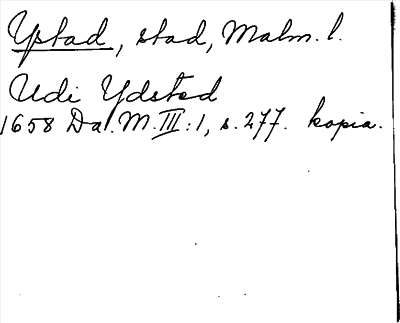 Ystad, stad, Malm. l.
Udi Ydsted
1658 Da. M. III: 1, s. 277. kopia.